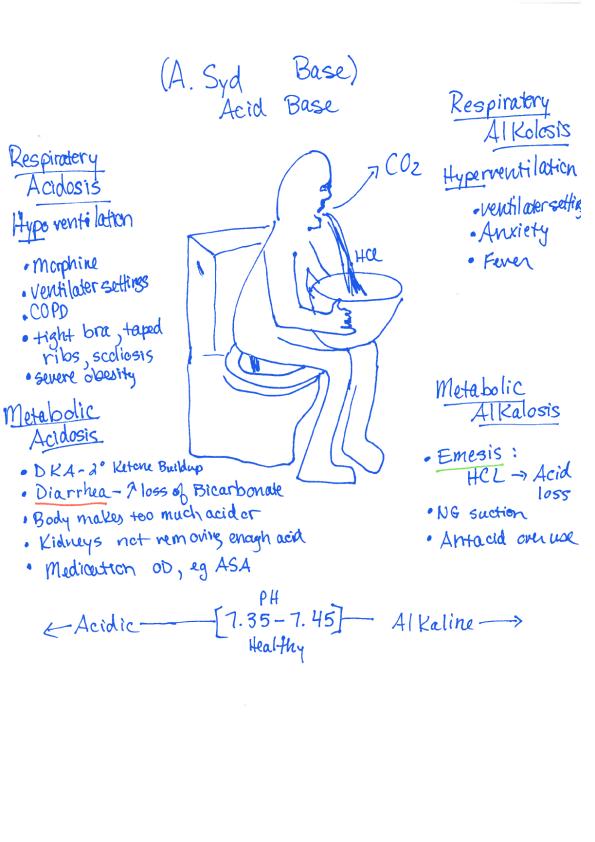 (A. Syd Base)
Acid Base
Respiratory
Acidosis
Hypoventilation
• Morphine
• ventilater settings
• COPD
• tight bra, taped
ribs, scoliosis
• severe obesity
Metabolic
Acidosis
• DKA - 2° Ketone Buildup
• Diarrhea - ↑ loss of Bicarbonate
• Body makes too much acid or
• Kidneys not removing enagh acid
• Medication OD, eg ASA
CO2
HCl
Respiratory
Alkolosis
Hyperventilation
• ventilater setting
• Anxiety
• Fever
Metabolic
Alkalosis
• Emesis :
HCL → Acid
loss
• NG suction
• Antacid over use
PH
← Acidic [7.35 - 7.45] Alkaline →
Healthy